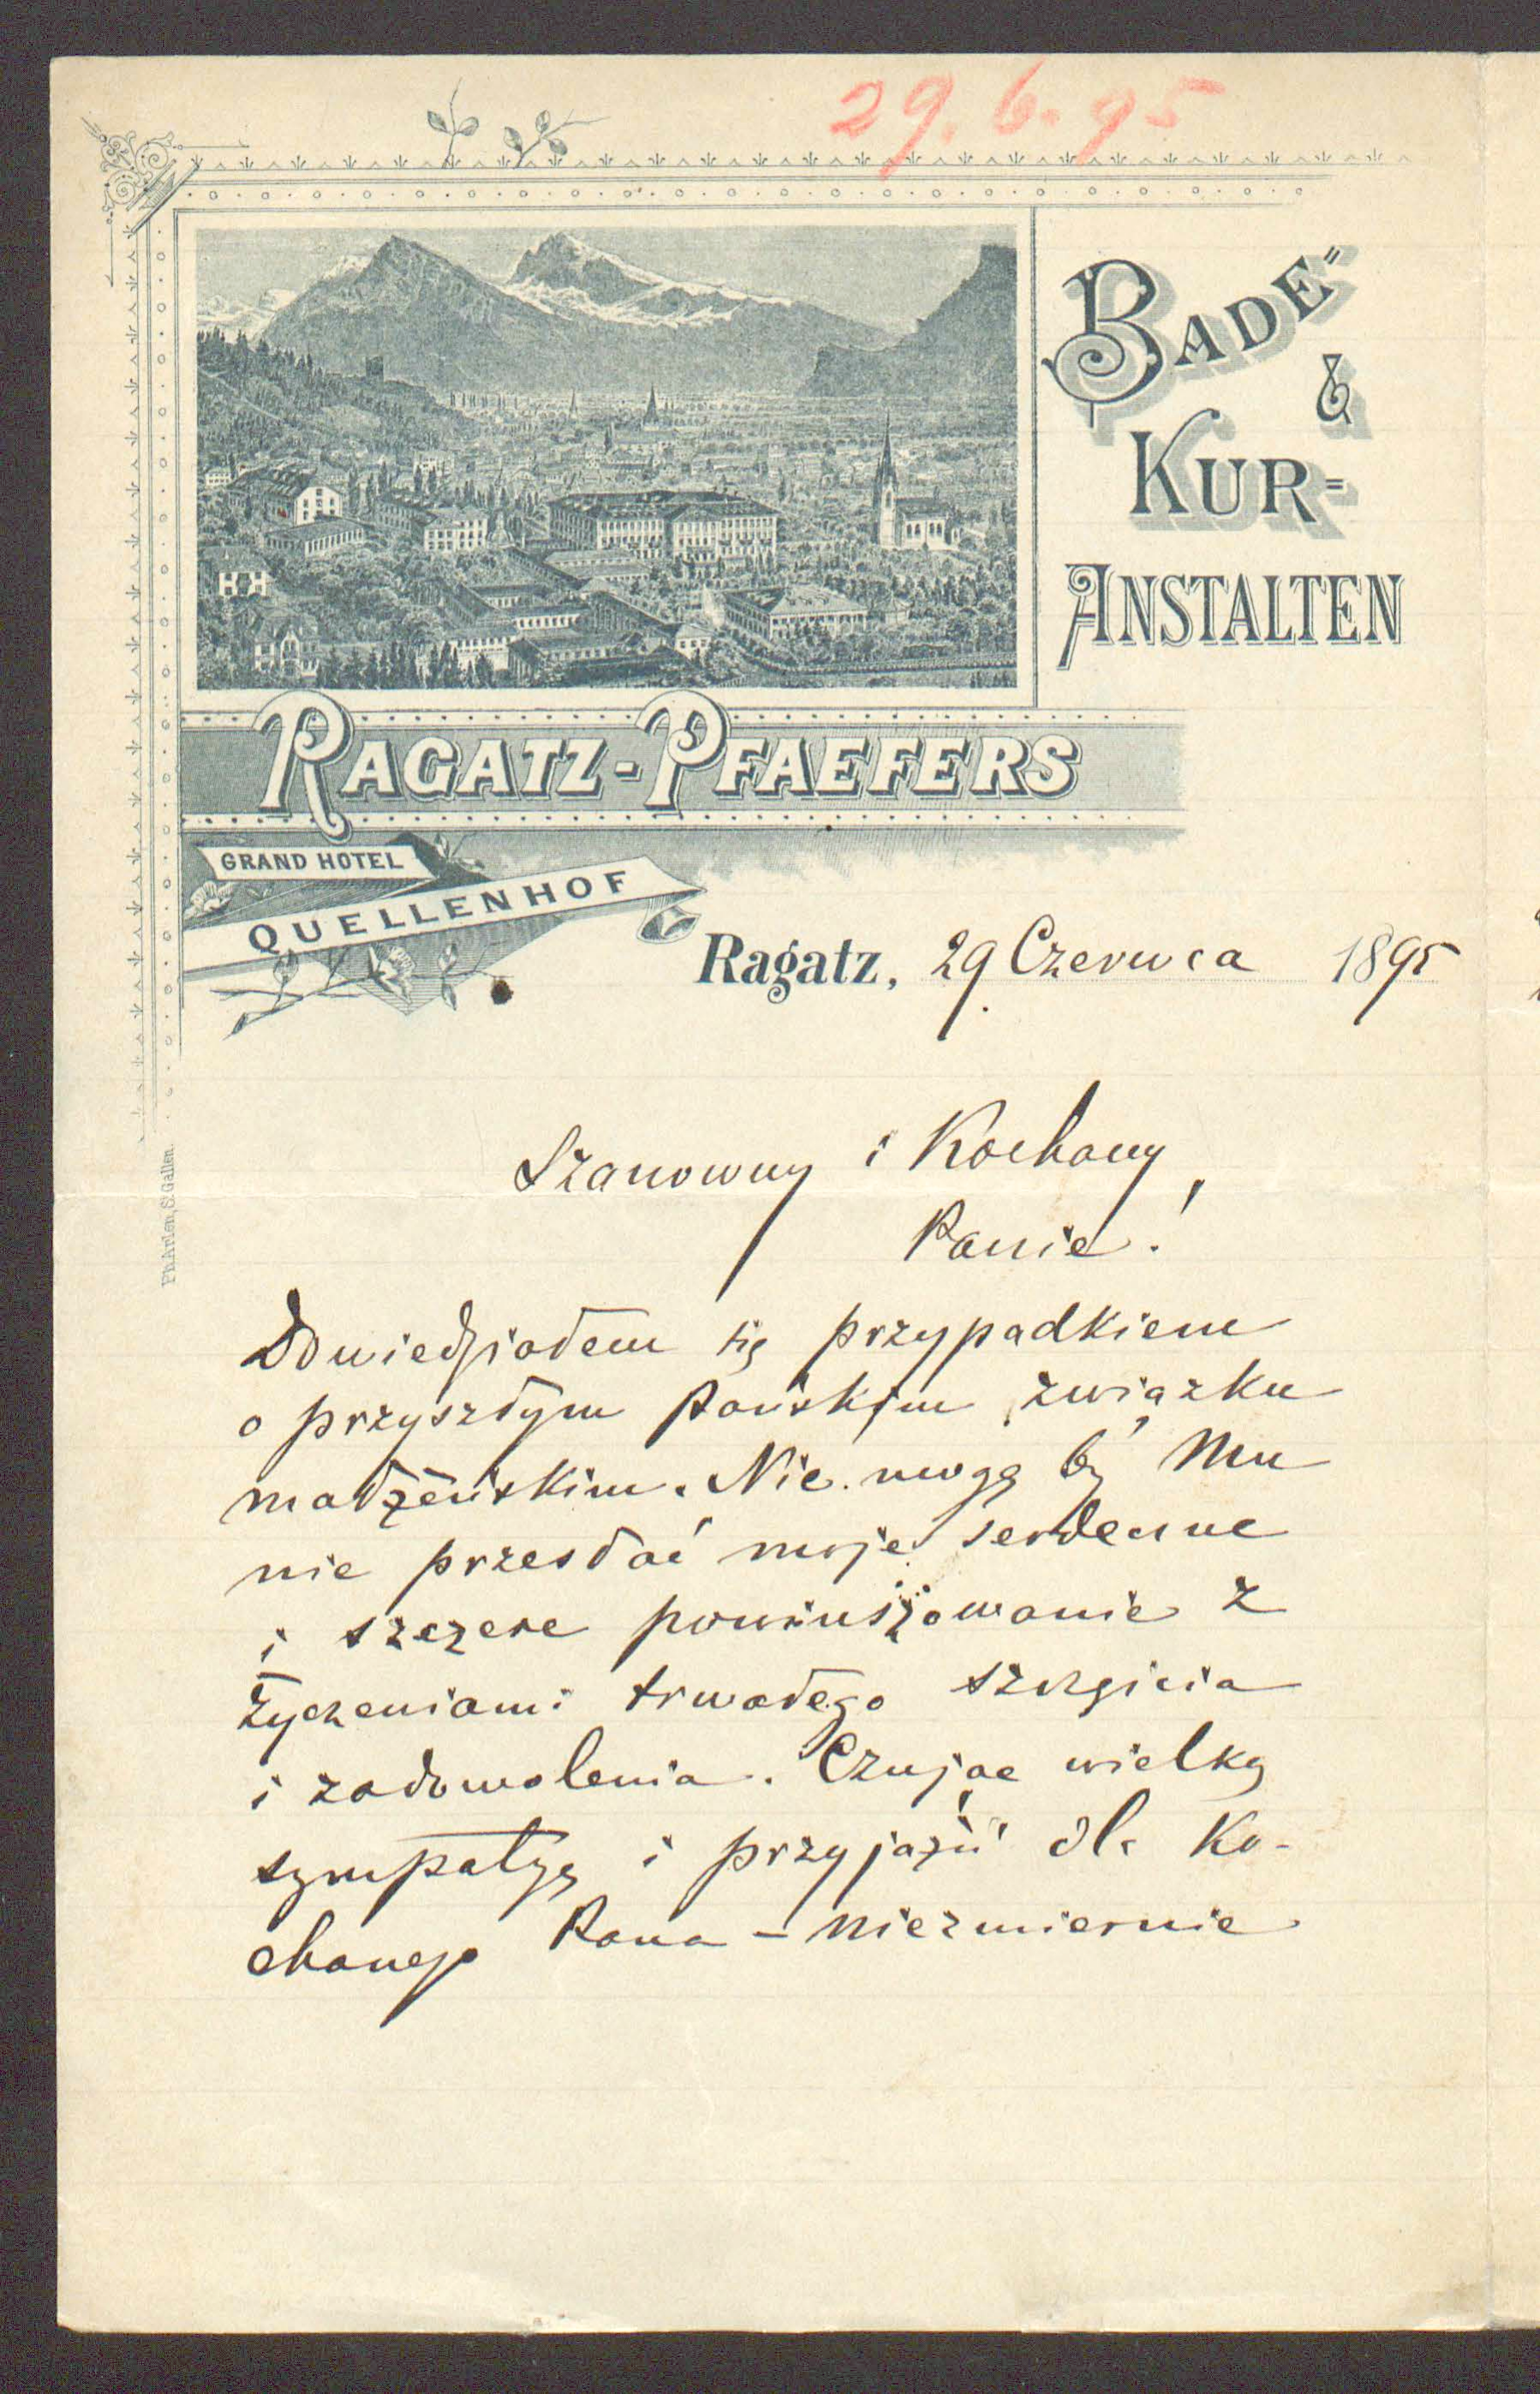 29. 6. 95
BADE=
&
KUR=
ANSTALTEN
RAGATZ-PFAEFERS
GRAND HOTEL
QUELLENHOF
Ragatz, 29 Czerwca 1895
Szanowny i Kochany,
Panie!
Dowiedziałem się przypadkiem
o przyszłym Pańskim związku
małżeńskim. Nie mogę by Mu
nie przesłać moje serdeczne
i szczere powinszowanie z
życzeniami trwałego szczęścia
i zadowolenia. Czując wielką
sympatyę i przyjaźń dla Ko-
chanego Pana – niezmiernie